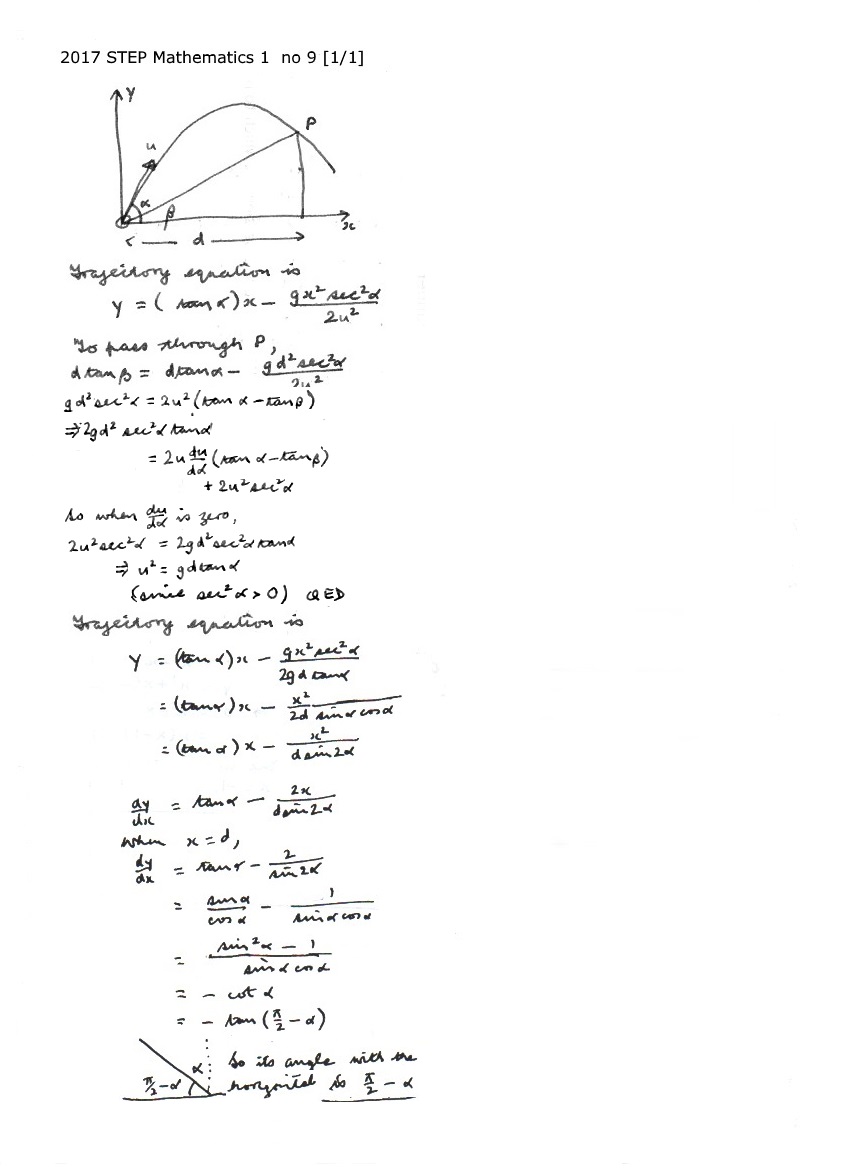 2017 STEP Mathematics 1 no 9 [1/1]
y
P
u
α
β
x
d
Trajectory equation is
y = ( tan α)x − gx² sec²α / 2u²
To pass through P,
d tan β = d tan α − gd² sec²α / 2u²
gd² sec²α = 2u² (tan α − tan β)
⇒ 2gd² sec²α tan α
= 2u du/dα (tan α − tan β)
+ 2u² sec²α
So when du/dα is zero,
2u² sec²α = 2gd² sec²α tan α
⇒ u² = gd tan α
(since sec²α > 0) QED
Trajectory equation is
y = (tan α)x − gx² sec²α / 2gd tan α
= (tan α)x − x² / 2d sin α cos α
= (tan α)x − x² / d sin 2α
dy/dx = tan α − 2x / d sin 2α
when x = d,
dy/dx = tan α − 2 / sin 2α
= sin α / cos α − 1 / sin α cos α
= sin²α − 1 / sin α cos α
= − cot α
= − tan (π/2 − α)
α
π/2 − α
So its angle with the
horizontal is π/2 − α